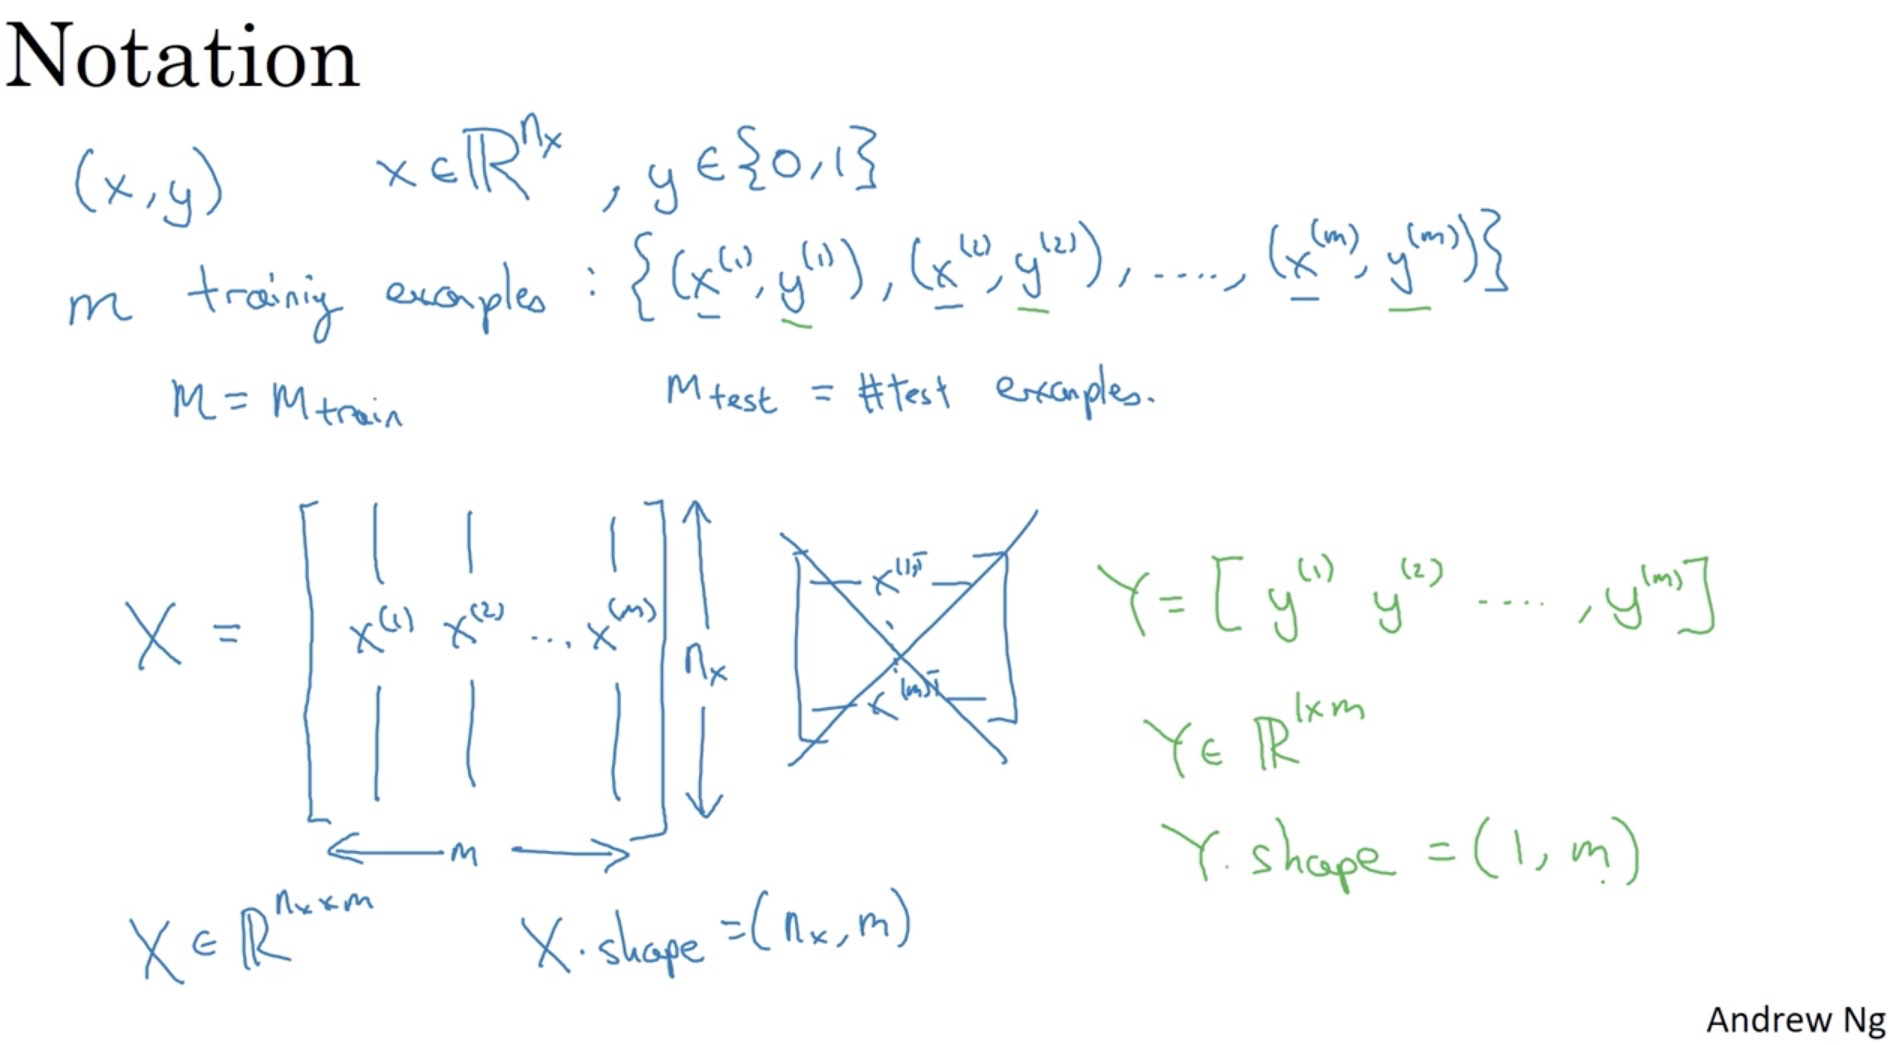 Notation
(x, y) x ∈ ℝ^{n_x}, y ∈ {0, 1}
m training examples : {(x^{(1)}, y^{(1)}), (x^{(2)}, y^{(2)}), ....., (x^{(m)}, y^{(m)})}
M = M_{train} M_{test} = #test examples.
X = [x^{(1)} x^{(2)} ... x^{(m)}] n_x
m
x^{(1)T}
x^{(m)T}
Y = [y^{(1)} y^{(2)} ...., y^{(m)}]
Y ∈ ℝ^{1×m}
Y.shape = (1, m)
X ∈ ℝ^{n_x × m} X.shape = (n_x, m)
Andrew Ng